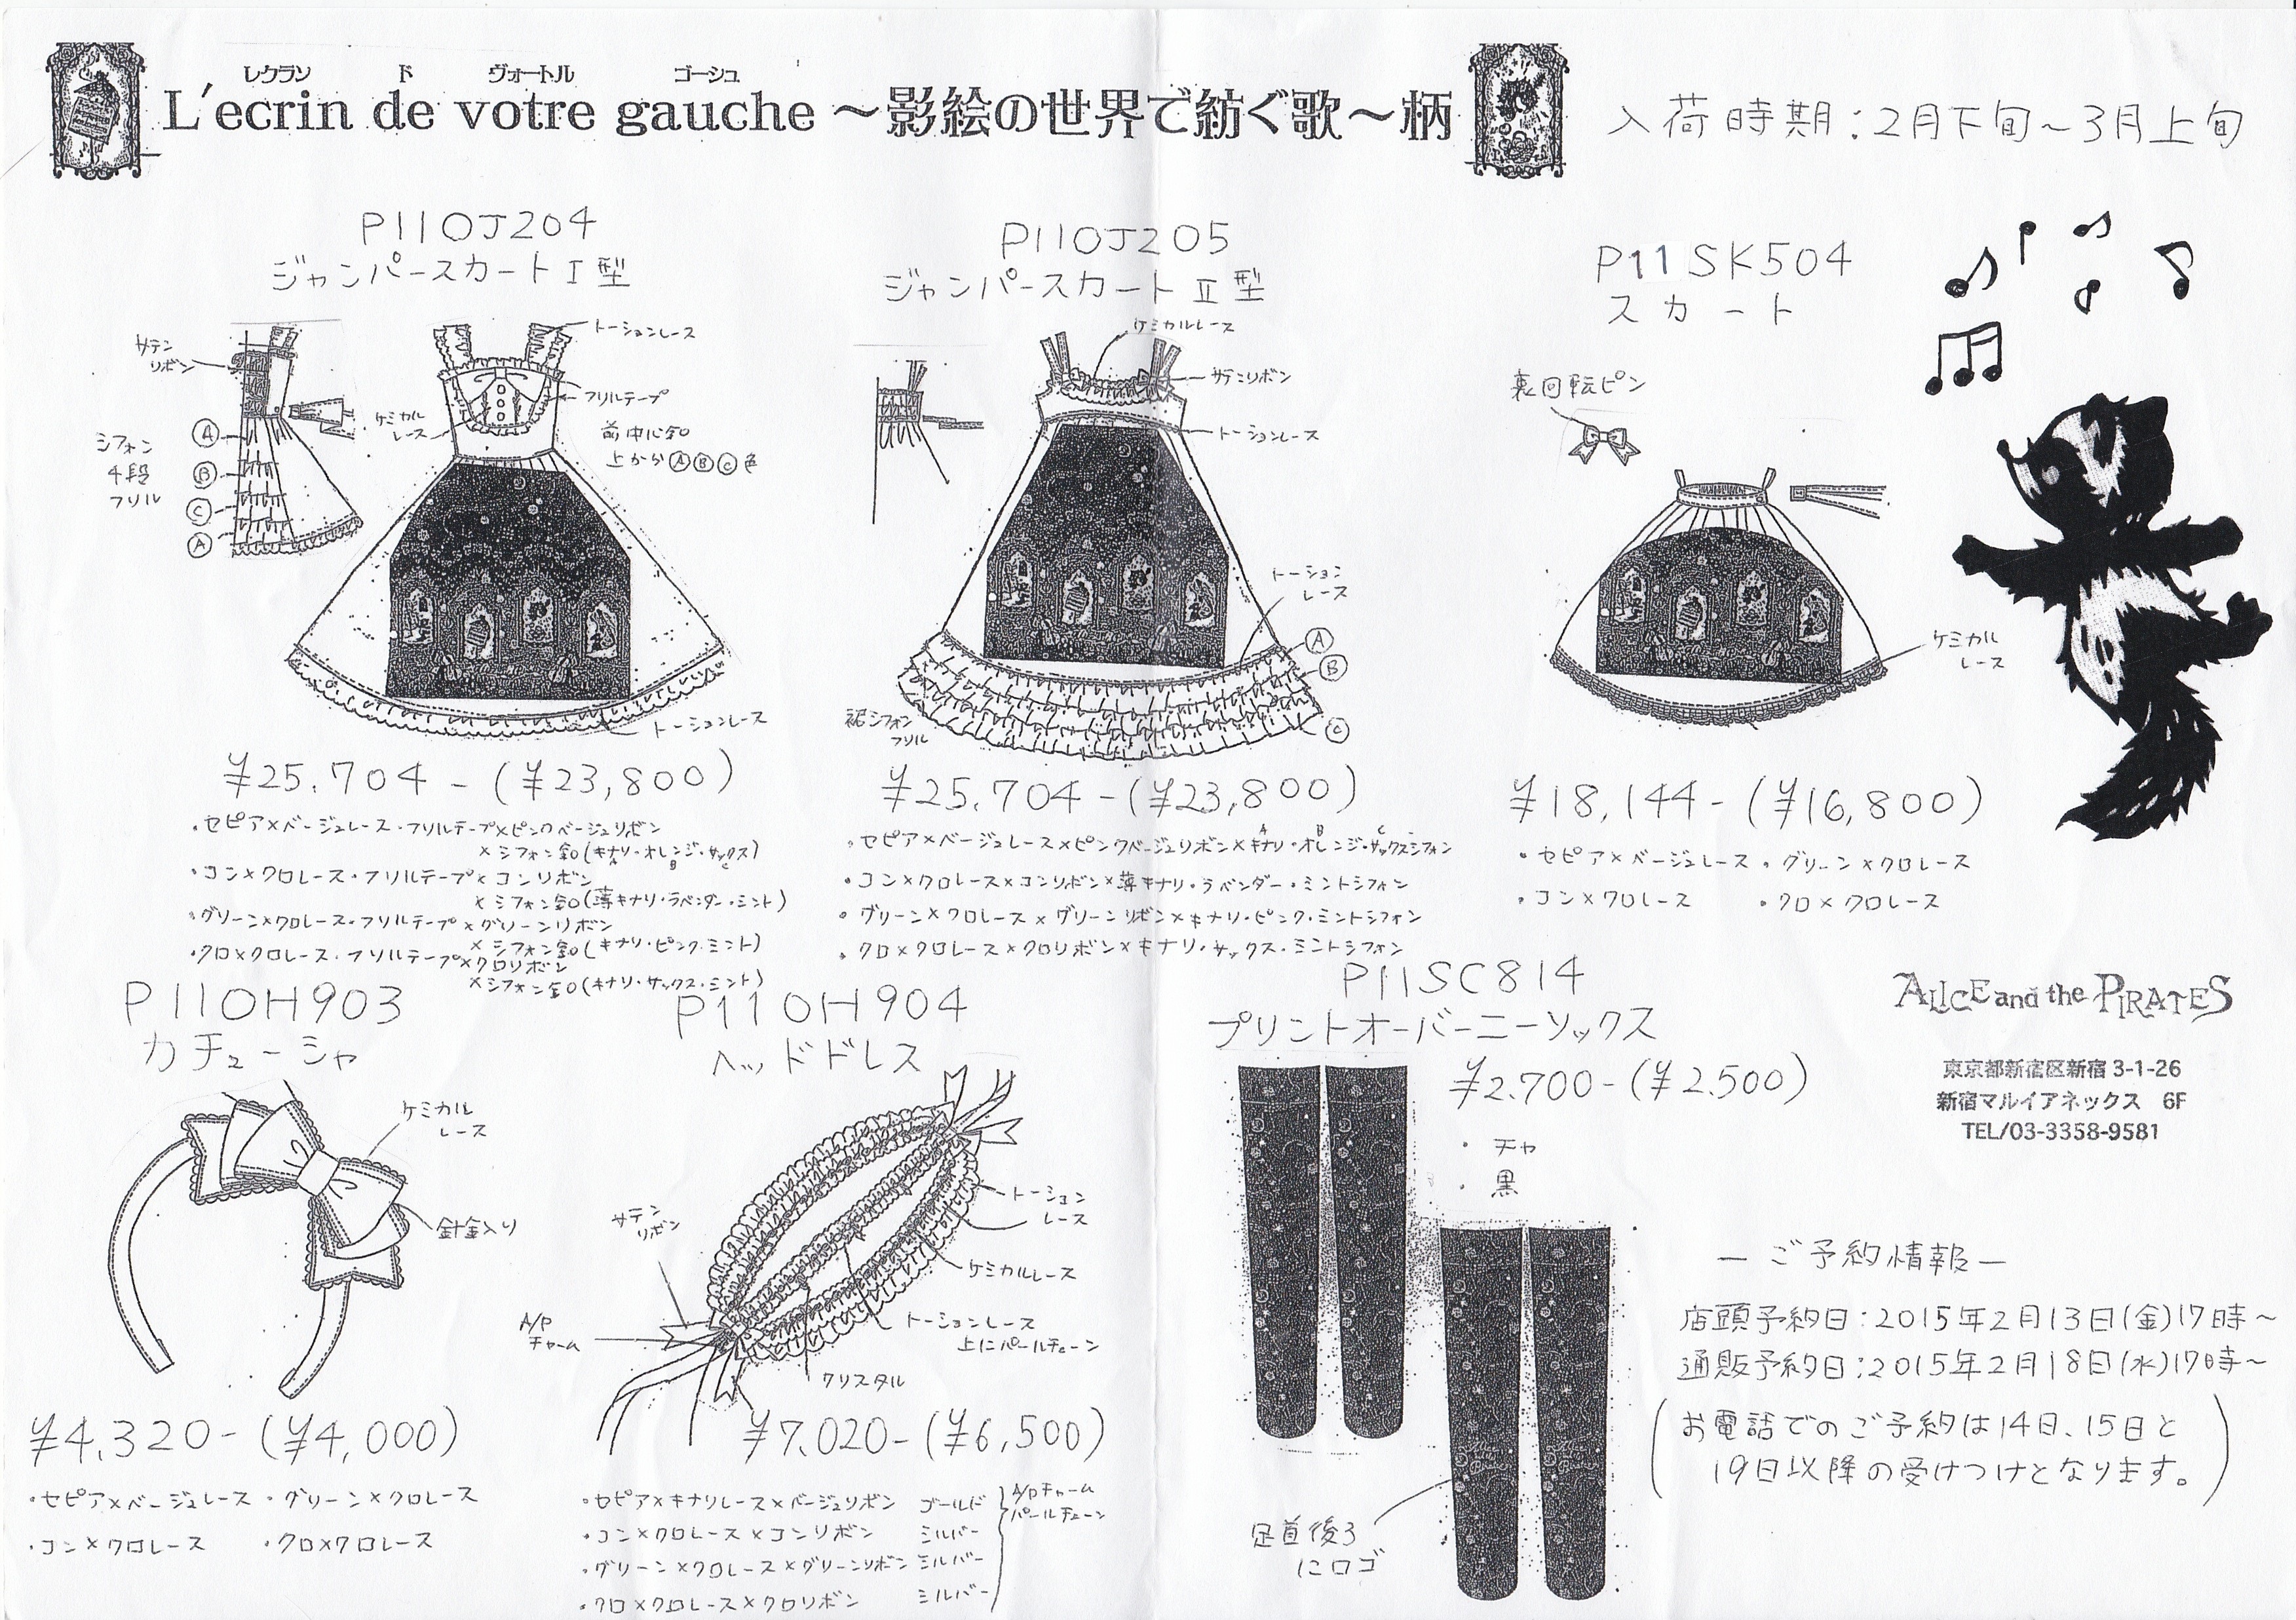 レクラン ド ヴォートル ゴーシュ
L'ecrin de votre gauche ～影絵の世界で紡ぐ歌～柄
入荷時期：2月下旬～3月上旬
P110J204
ジャンパースカートⅠ型
サテン
リボン
トーションレース
フリルテープ
ケミカル
レース
前中心釦
上からⒶⒷⒸ色
シフォン
4段
フリル
Ⓐ
Ⓑ
Ⓒ
Ⓐ
トーションレース
¥25.704-(¥23,800)
・セピア×ベージュレース・フリルテープ×ピンクベージュリボン
×シフォン釦(キナリ・オレンジ・サックス)
A B C
・コン×クロレース・フリルテープ×コンリボン
×シフォン釦(薄キナリ・ラベンダー・ミント)
・グリーン×クロレース・フリルテープ×グリーンリボン
×シフォン釦(キナリ・ピンク・ミント)
・クロ×クロレース・フリルテープ×クロリボン
×シフォン釦(キナリ・サックス・ミント)
P110J205
ジャンパースカートⅡ型
ケミカルレース
サテンリボン
トーションレース
トーション
レース
Ⓐ
Ⓑ
Ⓒ
裾シフォン
フリル
¥25.704-(¥23,800)
A B C
・セピア×ベージュレース×ピンクベージュリボン×キナリ・オレンジ・サックスシフォン
・コン×クロレース×コンリボン×薄キナリ・ラベンダー・ミントシフォン
・グリーン×クロレース×グリーンリボン×キナリ・ピンク・ミントシフォン
・クロ×クロレース×クロリボン×キナリ・サックス・ミントシフォン
P11SK504
スカート
裏回転ピン
ケミカル
レース
¥18,144-(¥16,800)
・セピア×ベージュレース ・グリーン×クロレース
・コン×クロレース ・クロ×クロレース
P110H903
カチューシャ
ケミカル
レース
針金入り
¥4,320-(¥4,000)
・セピア×ベージュレース ・グリーン×クロレース
・コン×クロレース ・クロ×クロレース
P110H904
ヘッドドレス
サテン
リボン
トーション
レース
ケミカルレース
A/P
チャーム
トーションレース
上にパールチェーン
クリスタル
¥7.020-(¥6,500)
・セピア×キナリレース×ベージュリボン ゴールド
・コン×クロレース×コンリボン シルバー
・グリーン×クロレース×グリーンリボン シルバー
・クロ×クロレース×クロリボン シルバー
A/Pチャーム
パールチェーン
P11SC814
プリントオーバーニーソックス
¥2.700-(¥2.500)
・チャ
・黒
足首後ろ
にロゴ
ALICE and the PIRATES
東京都新宿区新宿 3-1-26
新宿マルイアネックス 6F
TEL/03-3358-9581
―ご予約情報―
店頭予約日：2015年2月13日(金)17時～
通販予約日：2015年2月18日(水)17時～
(お電話でのご予約は14日、15日と
19日以降の受けつけとなります。)